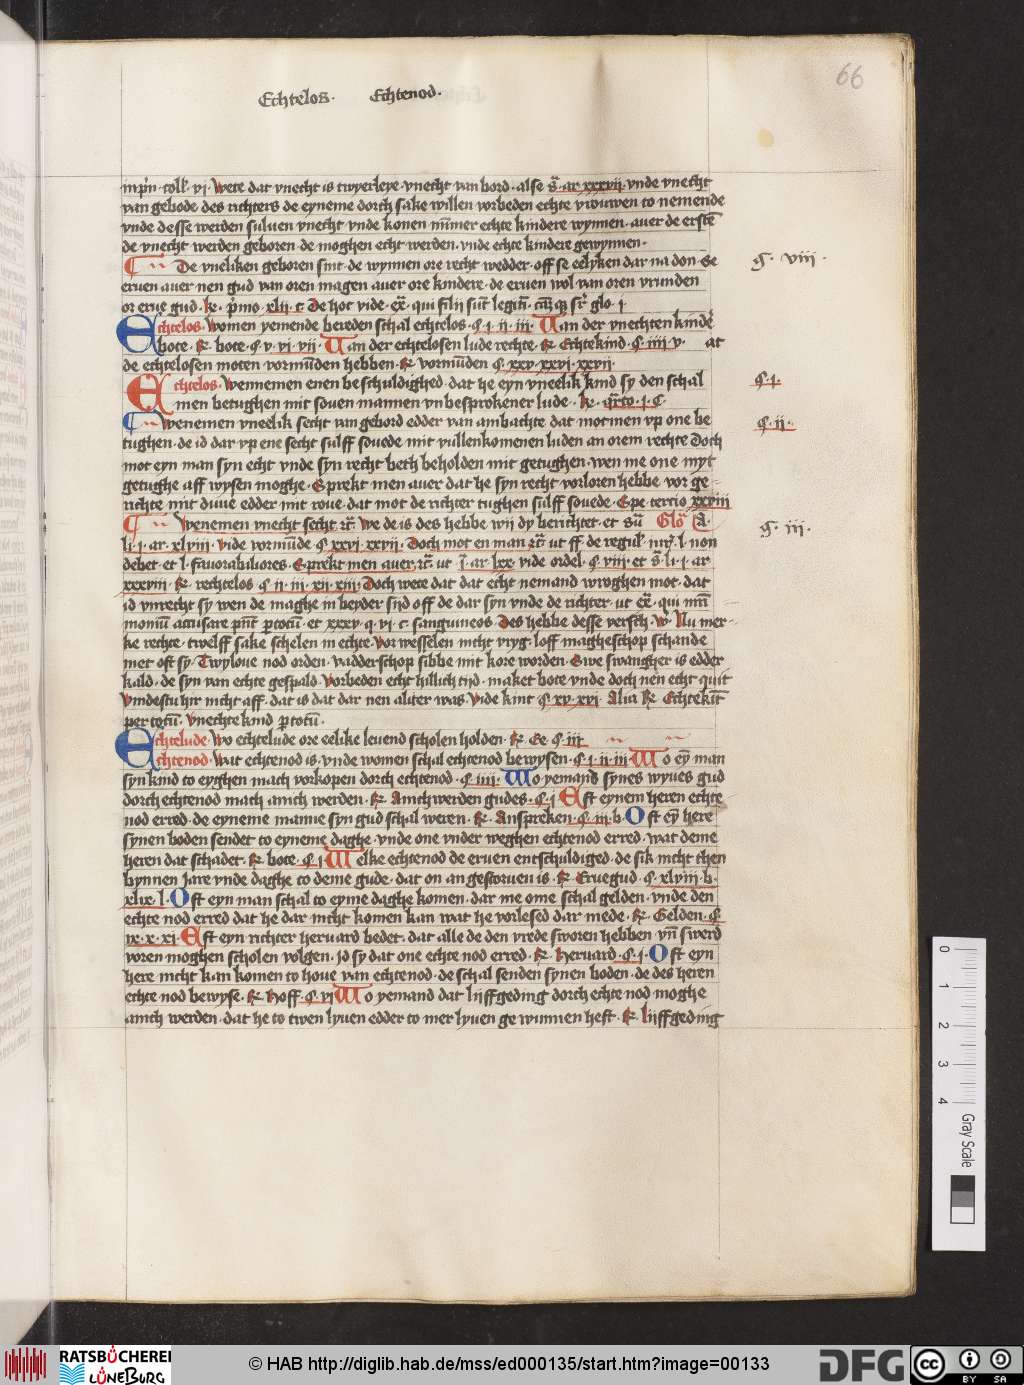 Echtelos. Echtenod.
66
vnde desse werden suluen vnecht vnde konen nummer echte kindere wynnen. auer de ersten
de vnecht werden geboren. de moghen echt werden. vnde echte kindere gewynnen.
De vneliken geboren sint. de wynnen ore recht wedder. off se eelyken dar na don. Se
eruen auer nen gud van oren magen auer ore kindere. de eruen wol van oren vrunden
g. viii.
Echtelos. Women yemende bereden schal echtelos. q. i. ii. iii. Van der vnechten kinder
bote. R. bote. q. v. vi. vii. Van der echtelosen lude rechte. R. Echtekind. q. iiii. v. at
de echtelosen moten vormunden hebben. R. vormunden q. xxv. xxvi. xxvii.
Echtelos. Wennemen enen beschuldighed. dat he eyn vneelik kind sy den schal
men betughen mit souen mannen vnbesprokener lude.
q. i.
Wenemen vneelik secht van gebord edder van ambachte dat mot men vp one be
tughen. de id dar vp ene secht sulff souede mit vullenkomenen luden an orem rechte Doch
mot eyn man syn echt vnde syn recht beth beholden mit getughen. wen me one myt
getughe aff wysen moghe. Sprekt men auer dat he syn recht vorloren hebbe vor ge-
richte mit duue edder mit roue. dat mot de richter tughen sulff souede. Spe. tercio xxxiii
q. ii.
Wenemen vnecht secht etc. We de is des hebbe wij dy berichtet. et
g. iii.
xxxviii. R. rechtelos q. ii. iii. xii. xiii. Doch wete dat dat echt nemand wroghen mot. dat
id vnrecht sy wen de maghe in beyder sijd off de dar syn vnde de richter.
Des hebbe desse versch. Nu mer-
ke rechte. twelff sake schelen in echte. Vorwesselen nicht vryg. loff magheschop schande
met oft sy. Twylove nod orden. vadderschop sibbe mit kore worden. Ewe swangher is edder
kald. de syn van echte gespald. Vorbeden echt hillich tijd. maket bote vnde doch nen echt quit
Vindestu hir nicht aff. dat is dat dar nen aliter was. Vide kint q. xv. xvi. Alia R. Echtekint
per totum. Vnechte kind per totum.
Echtelude. Wo echtelude ore eelike leuend scholen holden. R. Ee. q. iii
Echtenod. Wat echtenod is. vnde women schal echtenod bewysen. q. i. ii. iii. Wo eyn man
syn kind to eyghen mach vorkopen dorch echtenod. q. iiii. Wo yemand synes wyues gud
dorch echtenod mach anich werden. R. Anichwerden gudes. q. i Eft eynem heren echte
nod erred. de eyneme manne syn gud schal weren. R. Anspreken. q. iii. b. Oft eyn here
synen boden sendet to eyneme daghe. vnde one vnder weghen echtenod erred. wat deme
heren dat schadet. R. bote. q. i. Welke echtenod de eruen entschuldiged. de sik nicht then
bynnen Jare vnde daghe to deme gude. dat on angestoruen is. R. Eruegud. q. xlviii. b.
xlix. l. Oft eyn man schal to eyme daghe komen. dar me ome schal gelden. vnde den
echte nod erred dat he dar nicht komen kan wat he vorlesed dar mede. R. Gelden. q.
ix. x. xi. Eft eyn richter heruard bedet. dat alle de den vrede sworen hebben. vnd swerd
voren moghen scholen volgen. jd sy dat one echte nod erred. R. Heruard. q. i. Oft eyn
here nicht kan komen to houe van echtenod. de schal senden synen boden. de des heren
echte nod bewyse. R. Hoff. q. vi Wo yemand dat lijffgeding dorch echte nod moghe
anich werden. dat he to twen lyuen edder to mer lyuen gewunnen heft. R. lijffgeding
0 1 2 3 4 Gray Scale
RATSBÜCHEREI LÜNEBURG
© HAB http://diglib.hab.de/mss/ed000135/start.htm?image=00133
DFG
cc BY SA